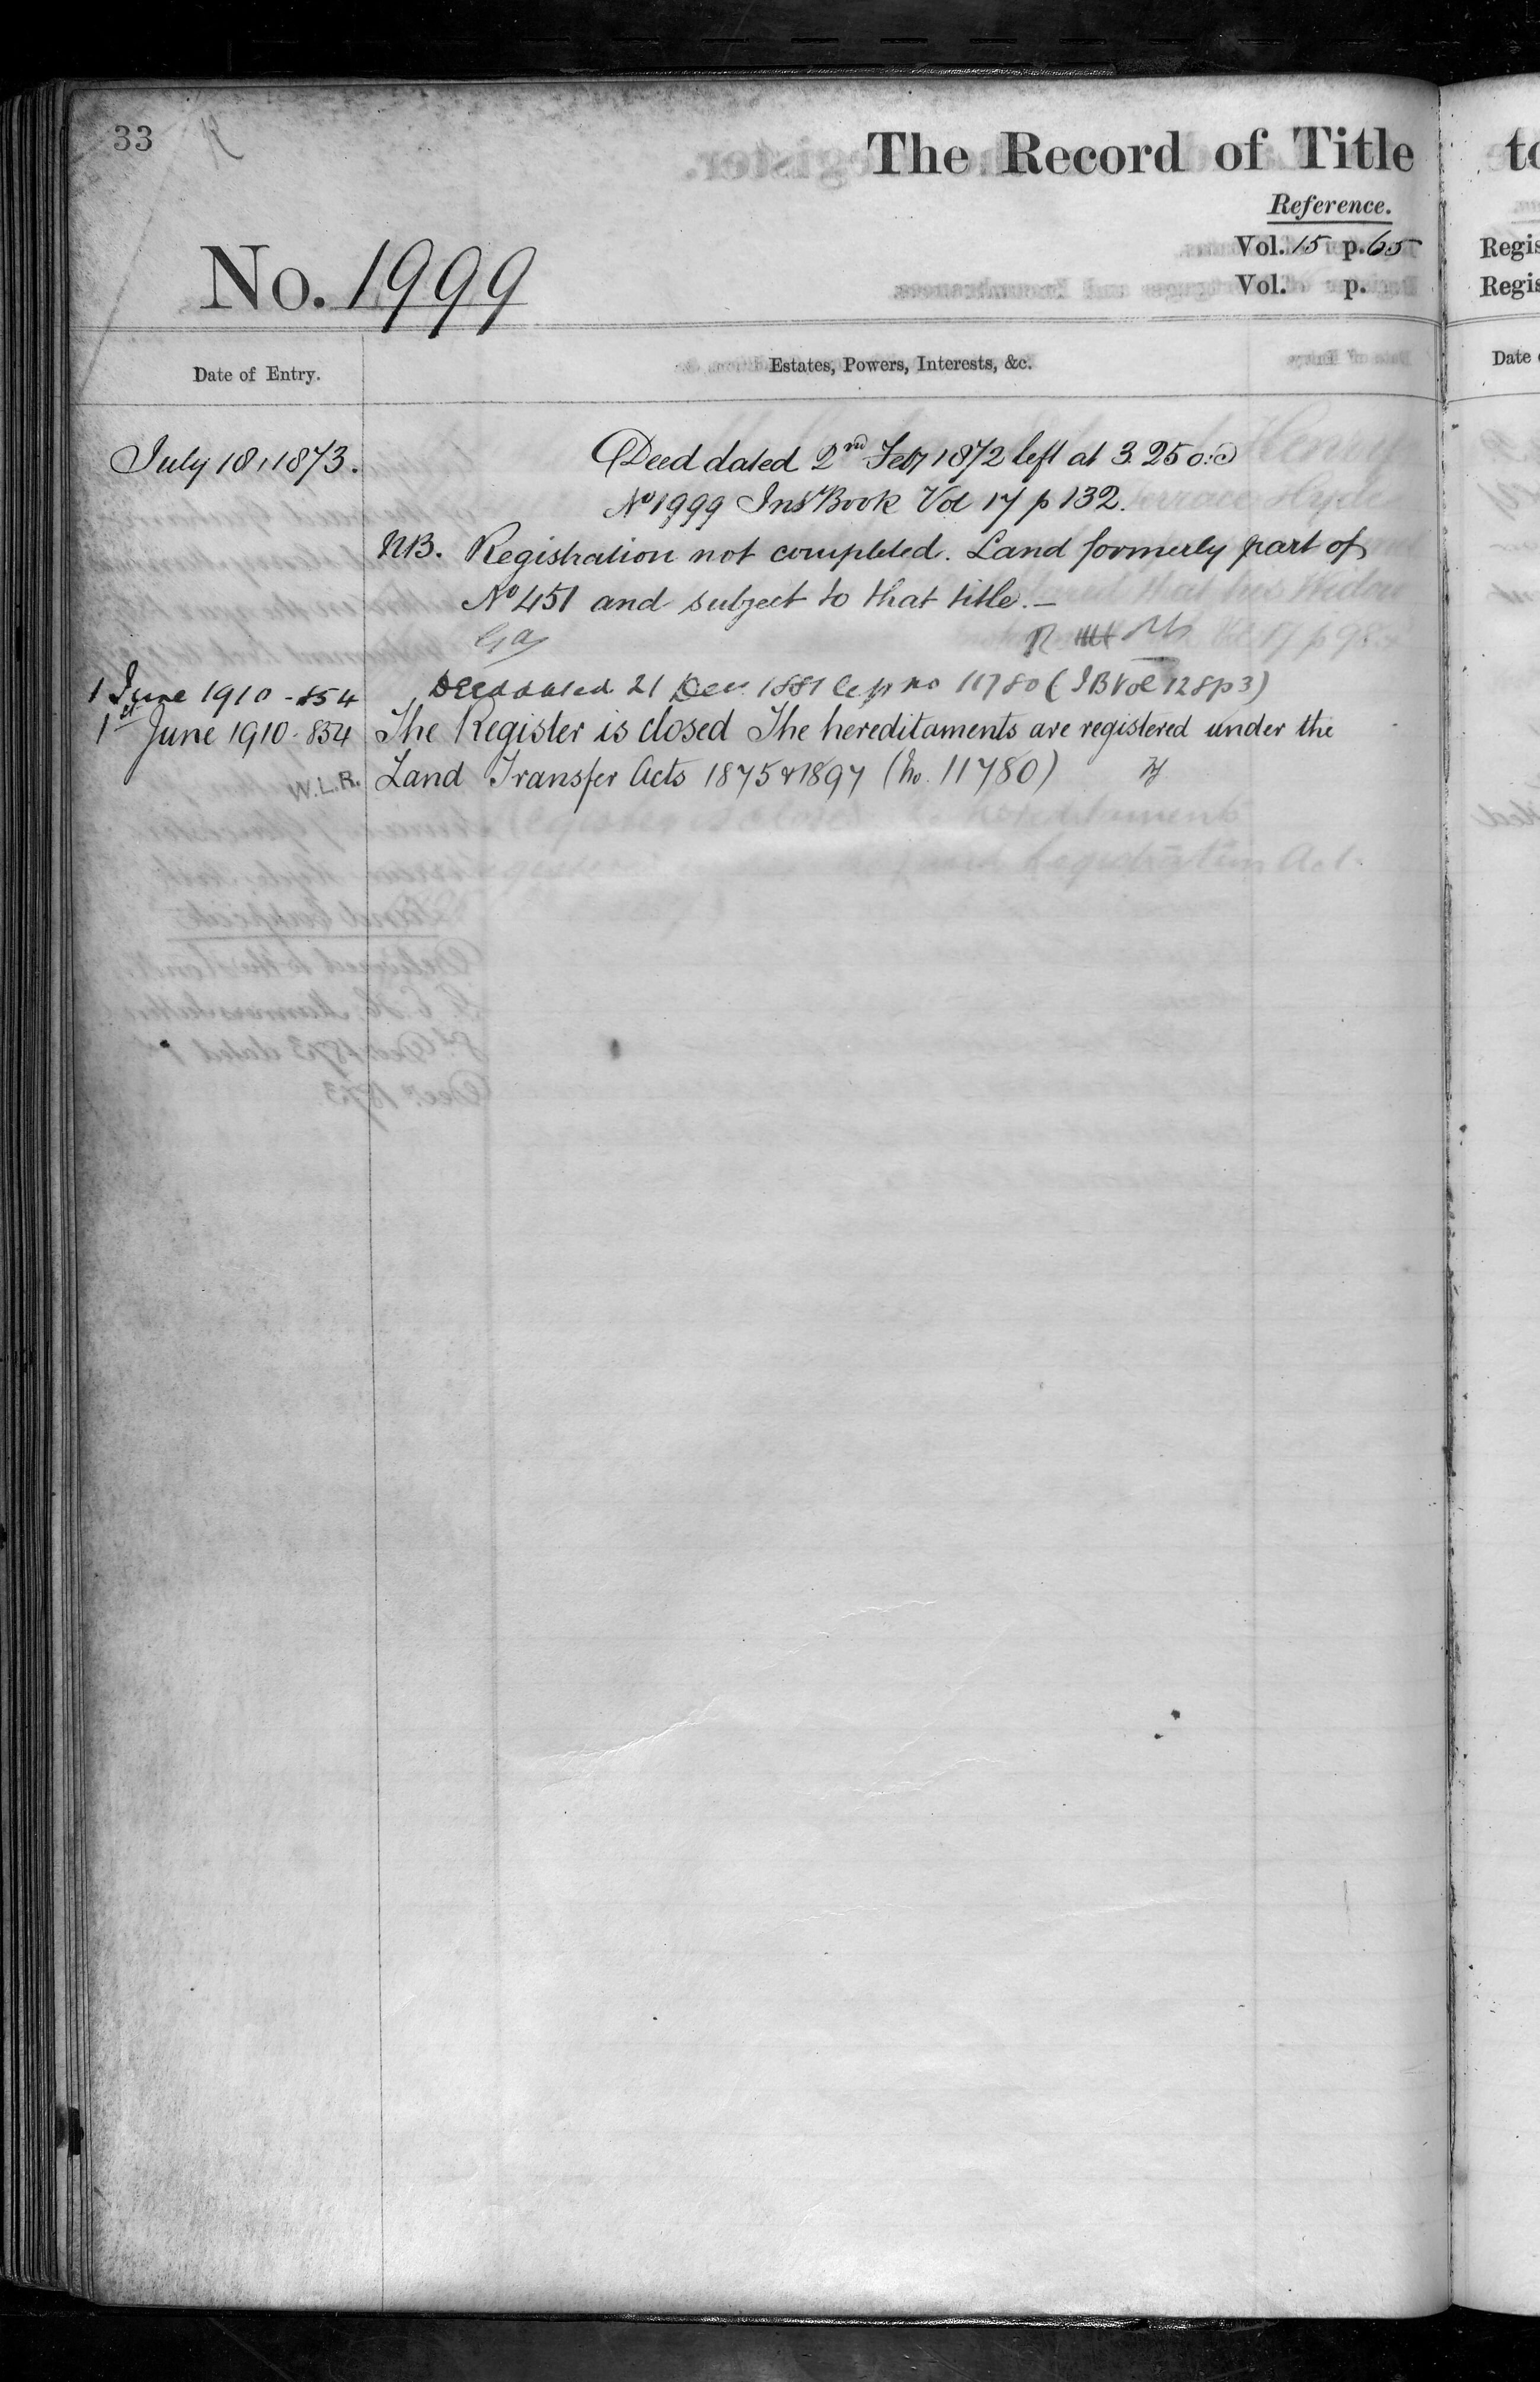 33
The Record of Title
Reference.
Vol. 15 p. 65
Vol. p.
No. 1999
Date of Entry.
Estates, Powers, Interests, &c.
July 18, 1873.
Deed dated 2nd Feby 1872 left at 3.25
No 1999 Inst Book Vol 17 p 132.
NB. Registration not completed. Land formerly part of
No 451 and subject to that title. —
1 June 1910 - 854
Deed dated 21 Dec. 1881 no 11780 (IB Vol 128 p 3)
1st June 1910 - 854
The Register is closed The hereditaments are registered under the
W.L.R.
Land Transfer Acts 1875 & 1897 (No. 11780)
to
Regis
Regis
Date